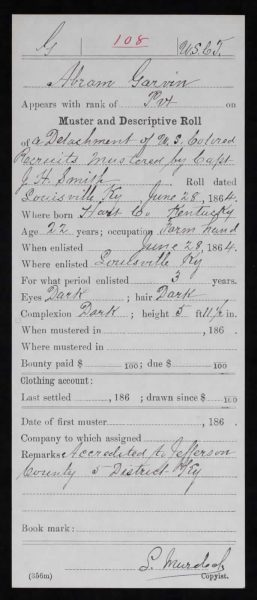 G 108 U.S.C.T.
Abram Garvin
Appears with rank of Pvt on
Muster and Descriptive Roll
of a Detachment of U.S. Colored
Recruits mustered by Capt
J. H. Smith Roll dated
Louisville Ky, June 28, 1864.
Where born Hart Co. Kentucky
Age 22 years; occupation Farm hand
When enlisted June 28, 1864.
Where enlisted Louisville Ky
For what period enlisted 3 years.
Eyes Dark; hair Dark
Complexion Dark; height 5 ft. in.
When mustered in , 186 .
Where mustered in
Bounty paid $ 100; due $ 100
Clothing account:
Last settled , 186 ; drawn since $ 100
Date of first muster , 186 .
Company to which assigned
Remarks: Accredited to Jefferson
County 5 District Ky
Book mark:
(356m) S. Murdoch
Copyist.